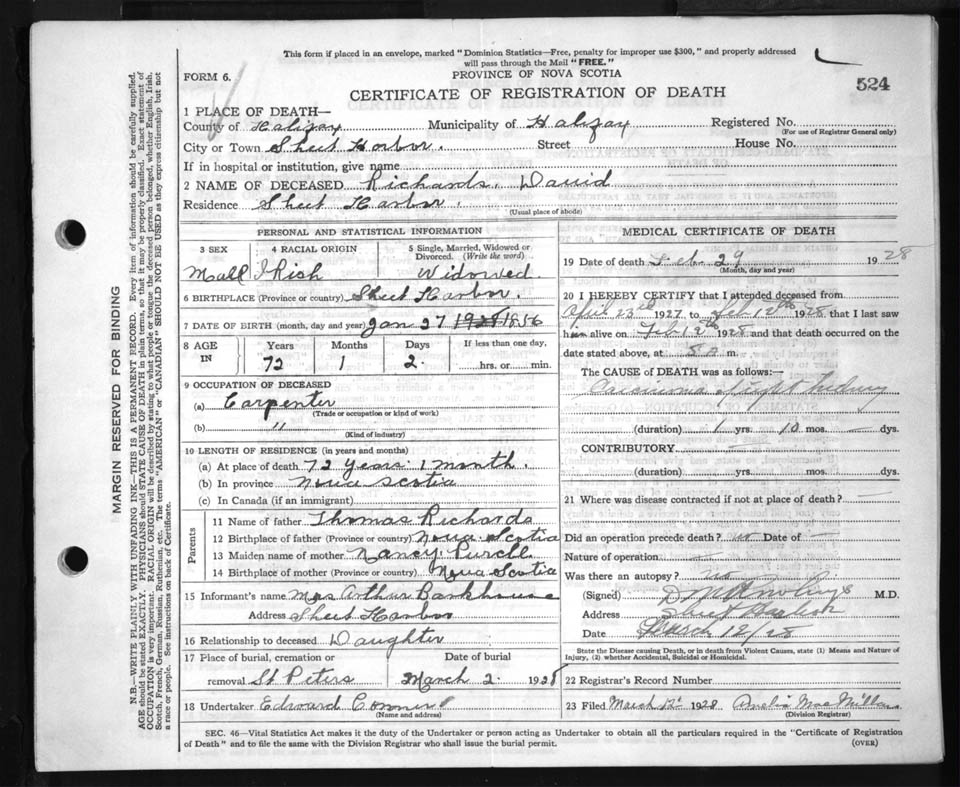 This form if placed in an envelope, marked "Dominion Statistics—Free, penalty for improper use $300," and properly addressed
will pass through the Mail "FREE."
FORM 6.
PROVINCE OF NOVA SCOTIA
524
CERTIFICATE OF REGISTRATION OF DEATH
1 PLACE OF DEATH—
County of Halifax Municipality of Halifax Registered No.
(For use of Registrar General only)
City or Town Sheet Harbor. Street House No.
If in hospital or institution, give name
2 NAME OF DECEASED Richards, David
Residence Sheet Harbor.
(Usual place of abode)
PERSONAL AND STATISTICAL INFORMATION
3 SEX 4 RACIAL ORIGIN 5 Single, Married, Widowed or
Divorced. (Write the word)
Mall Irish Widowed
6 BIRTHPLACE (Province or country) Sheet Harbor.
7 DATE OF BIRTH (month, day and year) Jan 27 1928 1856
8 AGE IN Years Months Days If less than one day,
72 1 2. hrs. or min.
9 OCCUPATION OF DECEASED
(a) Carpenter
(Trade or occupation or kind of work)
(b) "
(Kind of industry)
10 LENGTH OF RESIDENCE (in years and months)
(a) At place of death 72 years. 1 month.
(b) In province Nova Scotia
(c) In Canada (if an immigrant)
Parents
11 Name of father Thomas Richards
12 Birthplace of father (Province or country) Nova Scotia
13 Maiden name of mother Nancy Purcll.
14 Birthplace of mother (Province or country) Nova Scotia
15 Informant's name Mrs Arthur Barkhouse
Address Sheet Harbor
16 Relationship to deceased Daughter
17 Place of burial, cremation or Date of burial
removal St Peters March 2. 1928
18 Undertaker Edward Conner
(Name and address)
MEDICAL CERTIFICATE OF DEATH
19 Date of death Feb. 29 1928
(Month, day and year)
20 I HEREBY CERTIFY that I attended deceased from
April 23rd 1927 to Feb 12th 1928, that I last saw
him alive on Feb 12th 1928 and that death occurred on the
date stated above, at m.
The CAUSE OF DEATH was as follows:—
Carcinoma of right kidney
(duration) 1 yrs. 10 mos. — dys.
CONTRIBUTORY —
(duration) yrs. mos. dys.
21 Where was disease contracted if not at place of death? —
Did an operation precede death? no Date of —
Nature of operation —
Was there an autopsy? no
(Signed) M.D.
Address Sheet Harbor
Date March 12/28
State the Disease causing Death, or in death from Violent Causes, state (1) Means and Nature of
Injury, (2) whether Accidental, Suicidal or Homicidal.
22 Registrar's Record Number
23 Filed March 12 1928 Amelia MacMillan
(Division Registrar)
SEC. 46—Vital Statistics Act makes it the duty of the Undertaker or person acting as Undertaker to obtain all the particulars required in the "Certificate of Registration
of Death" and to file the same with the Division Registrar who shall issue the burial permit. (OVER)
MARGIN RESERVED FOR BINDING
N.B.—WRITE PLAINLY WITH UNFADING INK—THIS IS A PERMANENT RECORD. Every item of information should be carefully supplied.
AGE should be stated EXACTLY. PHYSICIANS should STATE CAUSE OF DEATH in plain terms, so that it may be properly classified. Exact statement of
OCCUPATION is very important. RACIAL ORIGIN will be described by stating to what people or tongue the deceased person belonged, whether English, Irish,
Scotch, French, German, Russian, Ruthenian, etc. The terms "AMERICAN" or "CANADIAN" SHOULD NOT BE USED as they express citizenship but not
a race or people. See instructions on back of Certificate.